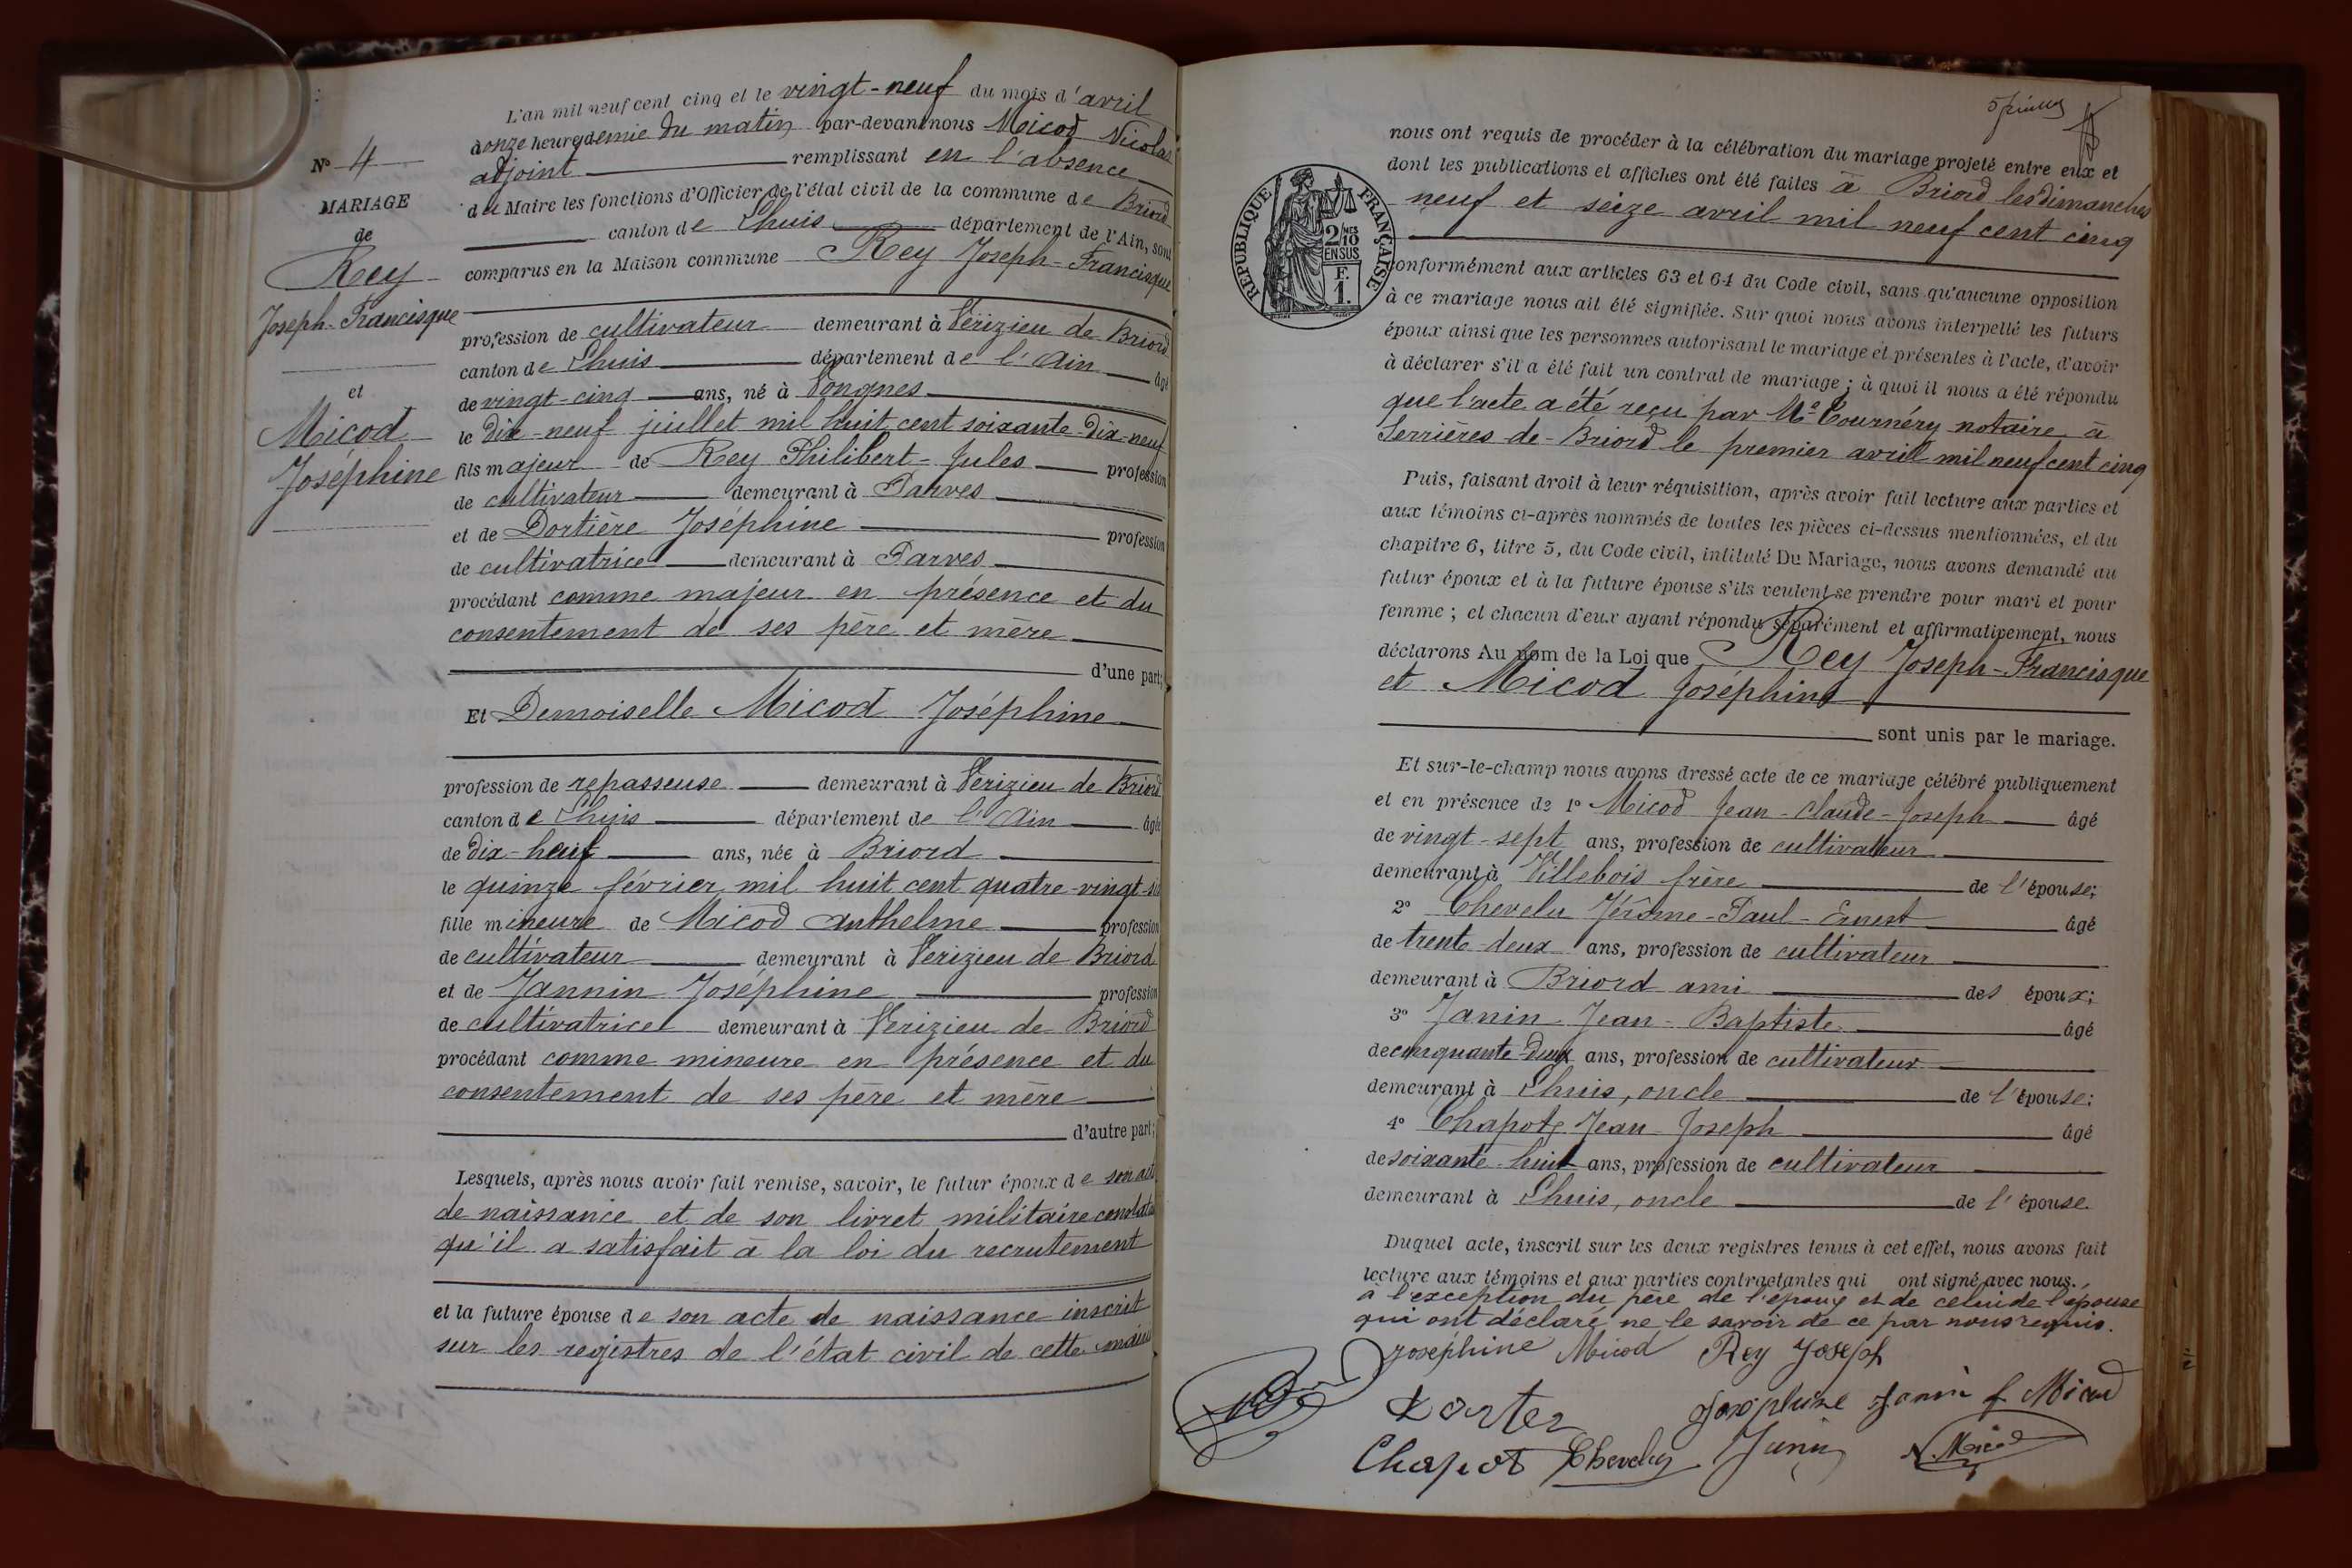 L'an mil neuf cent cinq et le vingt-neuf du mois d'avril
à onze heures demie du matin par-devant nous Micod Nicolas
adjoint remplissant en l'absence
du Maire les fonctions d'Officier de l'état civil de la commune de Briord
canton de Lhuis département de l'Ain, sont
comparus en la Maison commune Rey Joseph-Francisque
N° 4
MARIAGE
de
Rey
Joseph-Francisque
et
Micod
Joséphine
profession de cultivateur demeurant à Vérizieu de Briord
canton de Lhuis département de l'Ain âgé
de vingt-cinq ans, né à Vongnes
le dix-neuf juillet mil huit cent soixante-dix-neuf
fils majeur de Rey Philibert-Jules profession
de cultivateur demeurant à Parves
et de Dortière Joséphine profession
de cultivatrice demeurant à Parves
procédant comme majeur en présence et du
consentement de ses père et mère
d'une part;
Et Demoiselle Micod Joséphine
profession de repasseuse demeurant à Vérizieu de Briord
canton de Lhuis département de l'Ain âgée
de dix-neuf ans, née à Briord
le quinze février mil huit cent quatre-vingt-six
fille mineure de Micod Anthelme profession
de cultivateur demeurant à Verizieu de Briord
et de Jannin Joséphine profession
de cultivatrice demeurant à Verizieu de Briord
procédant comme mineure en présence et du
consentement de ses père et mère
d'autre part;
Lesquels, après nous avoir fait remise, savoir, le futur époux de son acte
de naissance et de son livret militaire constatant
qu'il a satisfait à la loi du recrutement
et la future épouse de son acte de naissance inscrit
sur les registres de l'état civil de cette mairie
5
nous ont requis de procéder à la célébration du mariage projeté entre eux et
dont les publications et affiches ont été faites à Briord les dimanches
neuf et seize avril mil neuf cent cinq
RÉPUBLIQUE FRANÇAISE
2 MES
10
EN SUS
F.
1.
conformément aux articles 63 et 64 du Code civil, sans qu'aucune opposition
à ce mariage nous ait été signifiée. Sur quoi nous avons interpellé les futurs
époux ainsi que les personnes autorisant le mariage et présentes à l'acte, d'avoir
à déclarer s'il a été fait un contrat de mariage; à quoi il nous a été répondu
que l'acte a été reçu par Me Tournéry notaire à
Serrières-de-Briord le premier avril mil neuf cent cinq
Puis, faisant droit à leur réquisition, après avoir fait lecture aux parties et
aux témoins ci-après nommés de toutes les pièces ci-dessus mentionnées, et du
chapitre 6, titre 5, du Code civil, intitulé Du Mariage, nous avons demandé au
futur époux et à la future épouse s'ils veulent se prendre pour mari et pour
femme; et chacun d'eux ayant répondu séparément et affirmativement, nous
déclarons Au nom de la Loi que Rey Joseph-Francisque
et Micod Joséphine
sont unis par le mariage.
Et sur-le-champ nous avons dressé acte de ce mariage célébré publiquement
et en présence de 1° Micod Jean-Claude-Joseph âgé
de vingt-sept ans, profession de cultivateur
demeurant à Villebois frère de l'épouse;
2° Chevelu Jérôme-Paul-Ernest âgé
de trente-deux ans, profession de cultivateur
demeurant à Briord ami des époux;
3° Janin Jean-Baptiste âgé
de cinquante-deux ans, profession de cultivateur
demeurant à Lhuis, oncle de l'épouse;
4° Chapot Jean Joseph âgé
de soixante-huit ans, profession de cultivateur
demeurant à Lhuis, oncle de l'épouse.
Duquel acte, inscrit sur les deux registres tenus à cet effet, nous avons fait
lecture aux témoins et aux parties contractantes qui ont signé avec nous.
à l'exception du père de l'époux et de celui de l'épouse
qui ont déclaré ne le savoir de ce par nous requis.
Joséphine Micod Rey Joseph
Joséphine Janin f. Micod
Chapot Chevelu Janin N. Micod